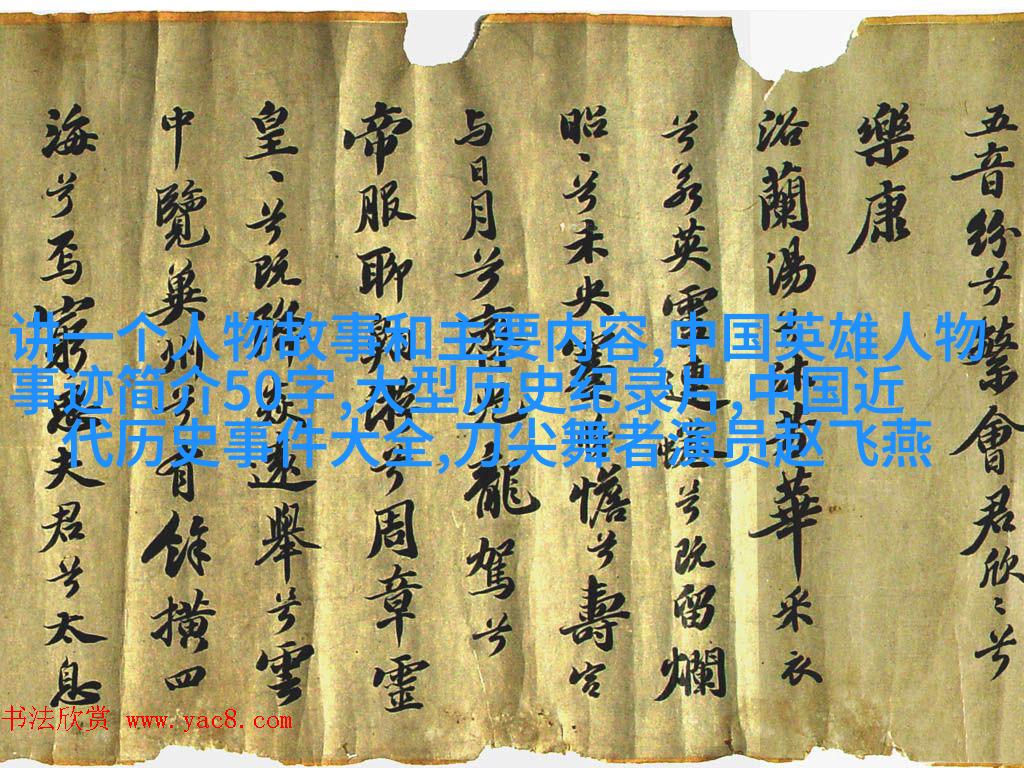 五音紛兮繁會君欣〻兮
樂康
浴蘭湯兮沐芳華采衣
兮若英靈連蜷兮既留爛
昭〻兮未央蹇憺兮壽宮
与日月兮齊光龍駕兮
帝服聊翱遊兮周章靈
皇〻兮既降猋遠舉兮雲
中覽冀州兮有餘橫四
海兮焉窮思夫君兮太息
讲一个人物故事和主要内容,中国英雄人物
事迹简介50字,大型历史纪录片,中国近
代历史事件大全,刀尖舞者演员赵飞燕
书法欣赏 www.yac8.com